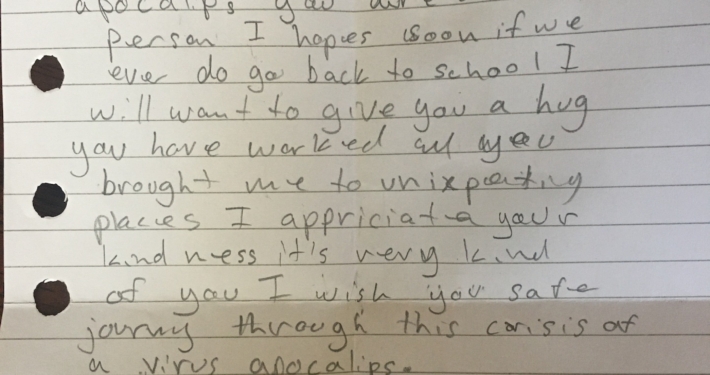 apocalips you are
person I hopes soon if we
ever do go back to school I
will want to give you a hug
you have worked all year
brought me to unixpecting
places I appriciate your
kindness it's very kind
of you I wish you safe
journy through this corisis of
a virus apocalips.